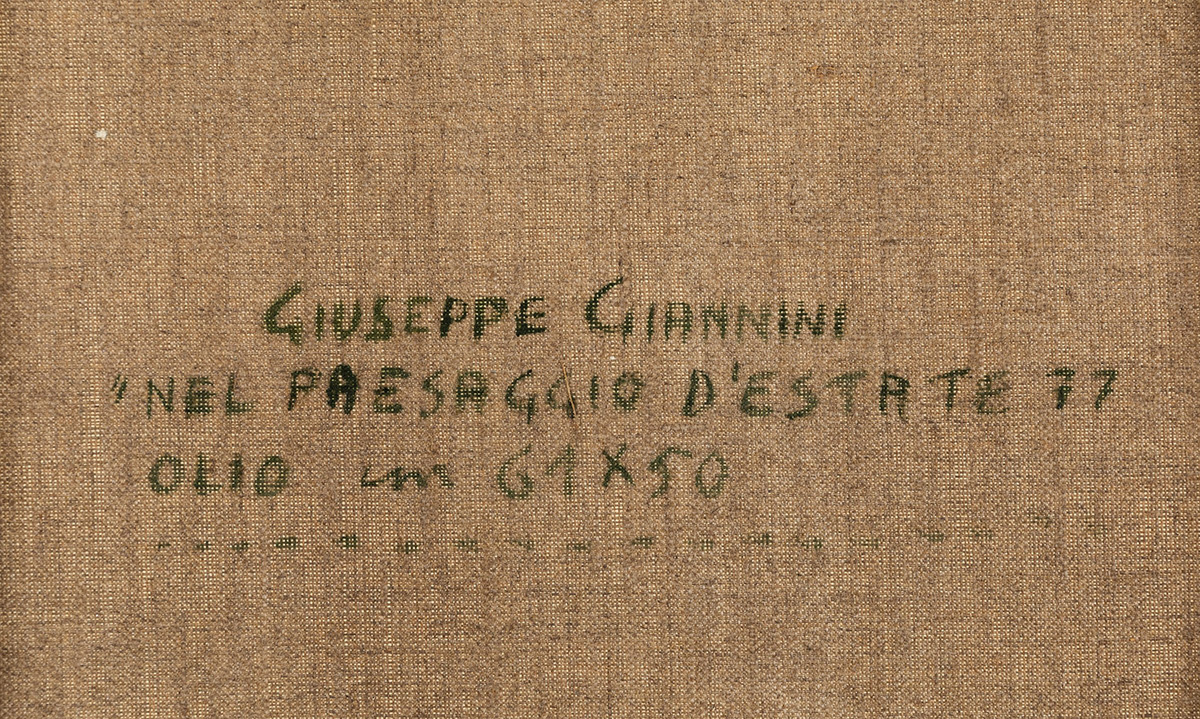 GIUSEPPE GIANNINI
"NEL PAESAGGIO D'ESTATE 77
OLIO cm 61X50